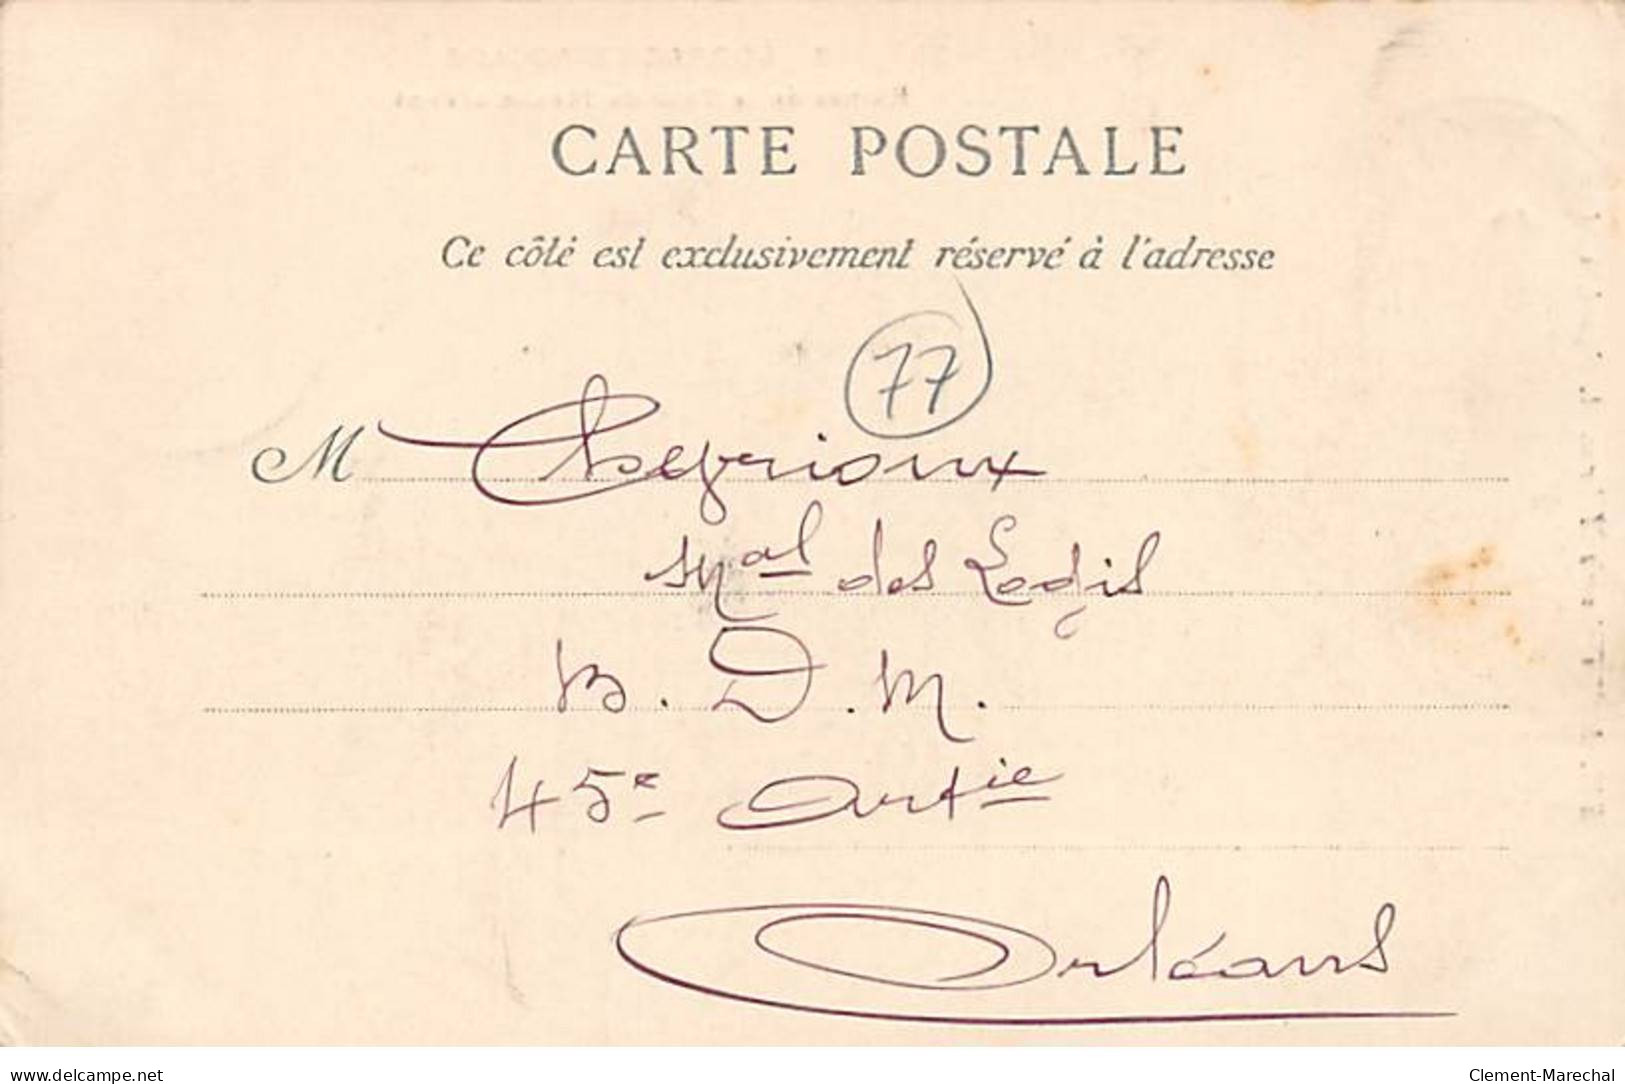 CARTE POSTALE
Ce côté est exclusivement réservé à l'adresse
77
M
Mal des Logis
B. D. M.
45e Artie
Orléans
www.delcampe.net
Clement-Marechal